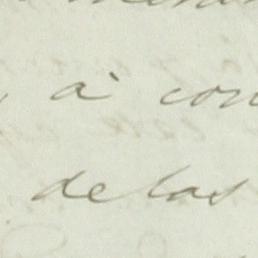 à con
de las